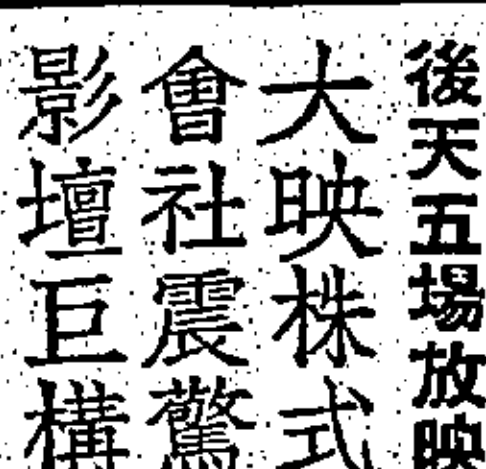 後天五場放映
大映株式
會社震驚
影壇巨構